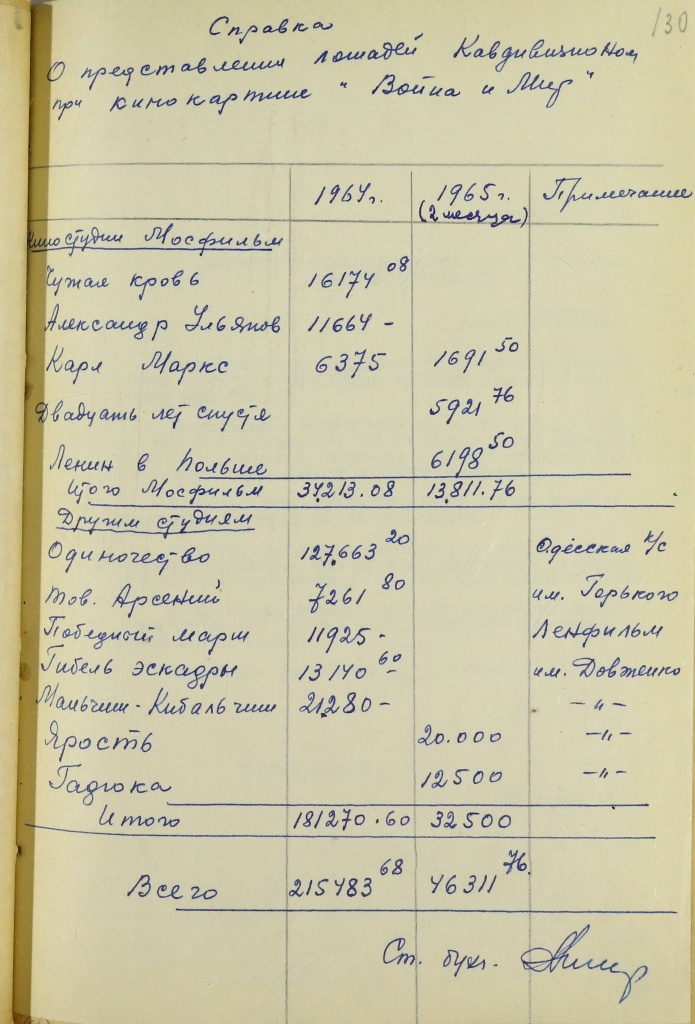 130
Справка
О представлении лошадей Кавдивизионом
при кинокартине "Война и Мир"
1964г. 1965г. Примечание
(2 месяца)
Киностудии Мосфильм
Чужая кровь 16174 08
Александр Ульянов 11664 -
Карл Маркс 6375 1691 50
Двадцать лет спустя 5921 76
Ленин в Польше 6198 50
Итого Мосфильм 34213.08 13.811.76
Другим студиям
Одиночество 127.663 20 Одесская к/с
Тов. Арсений 7261 80 им. Горького
Победный марш 11925 - Ленфильм
Гибель эскадры 13140 60 им. Довженко
Мальчиш-Кибальчиш 21.280 - -"-
Ярость 20.000 -"-
Гадюка 12500 -"-
Итого 181270.60 32500
Всего 215483 68 46311 76
Ст. бухг.